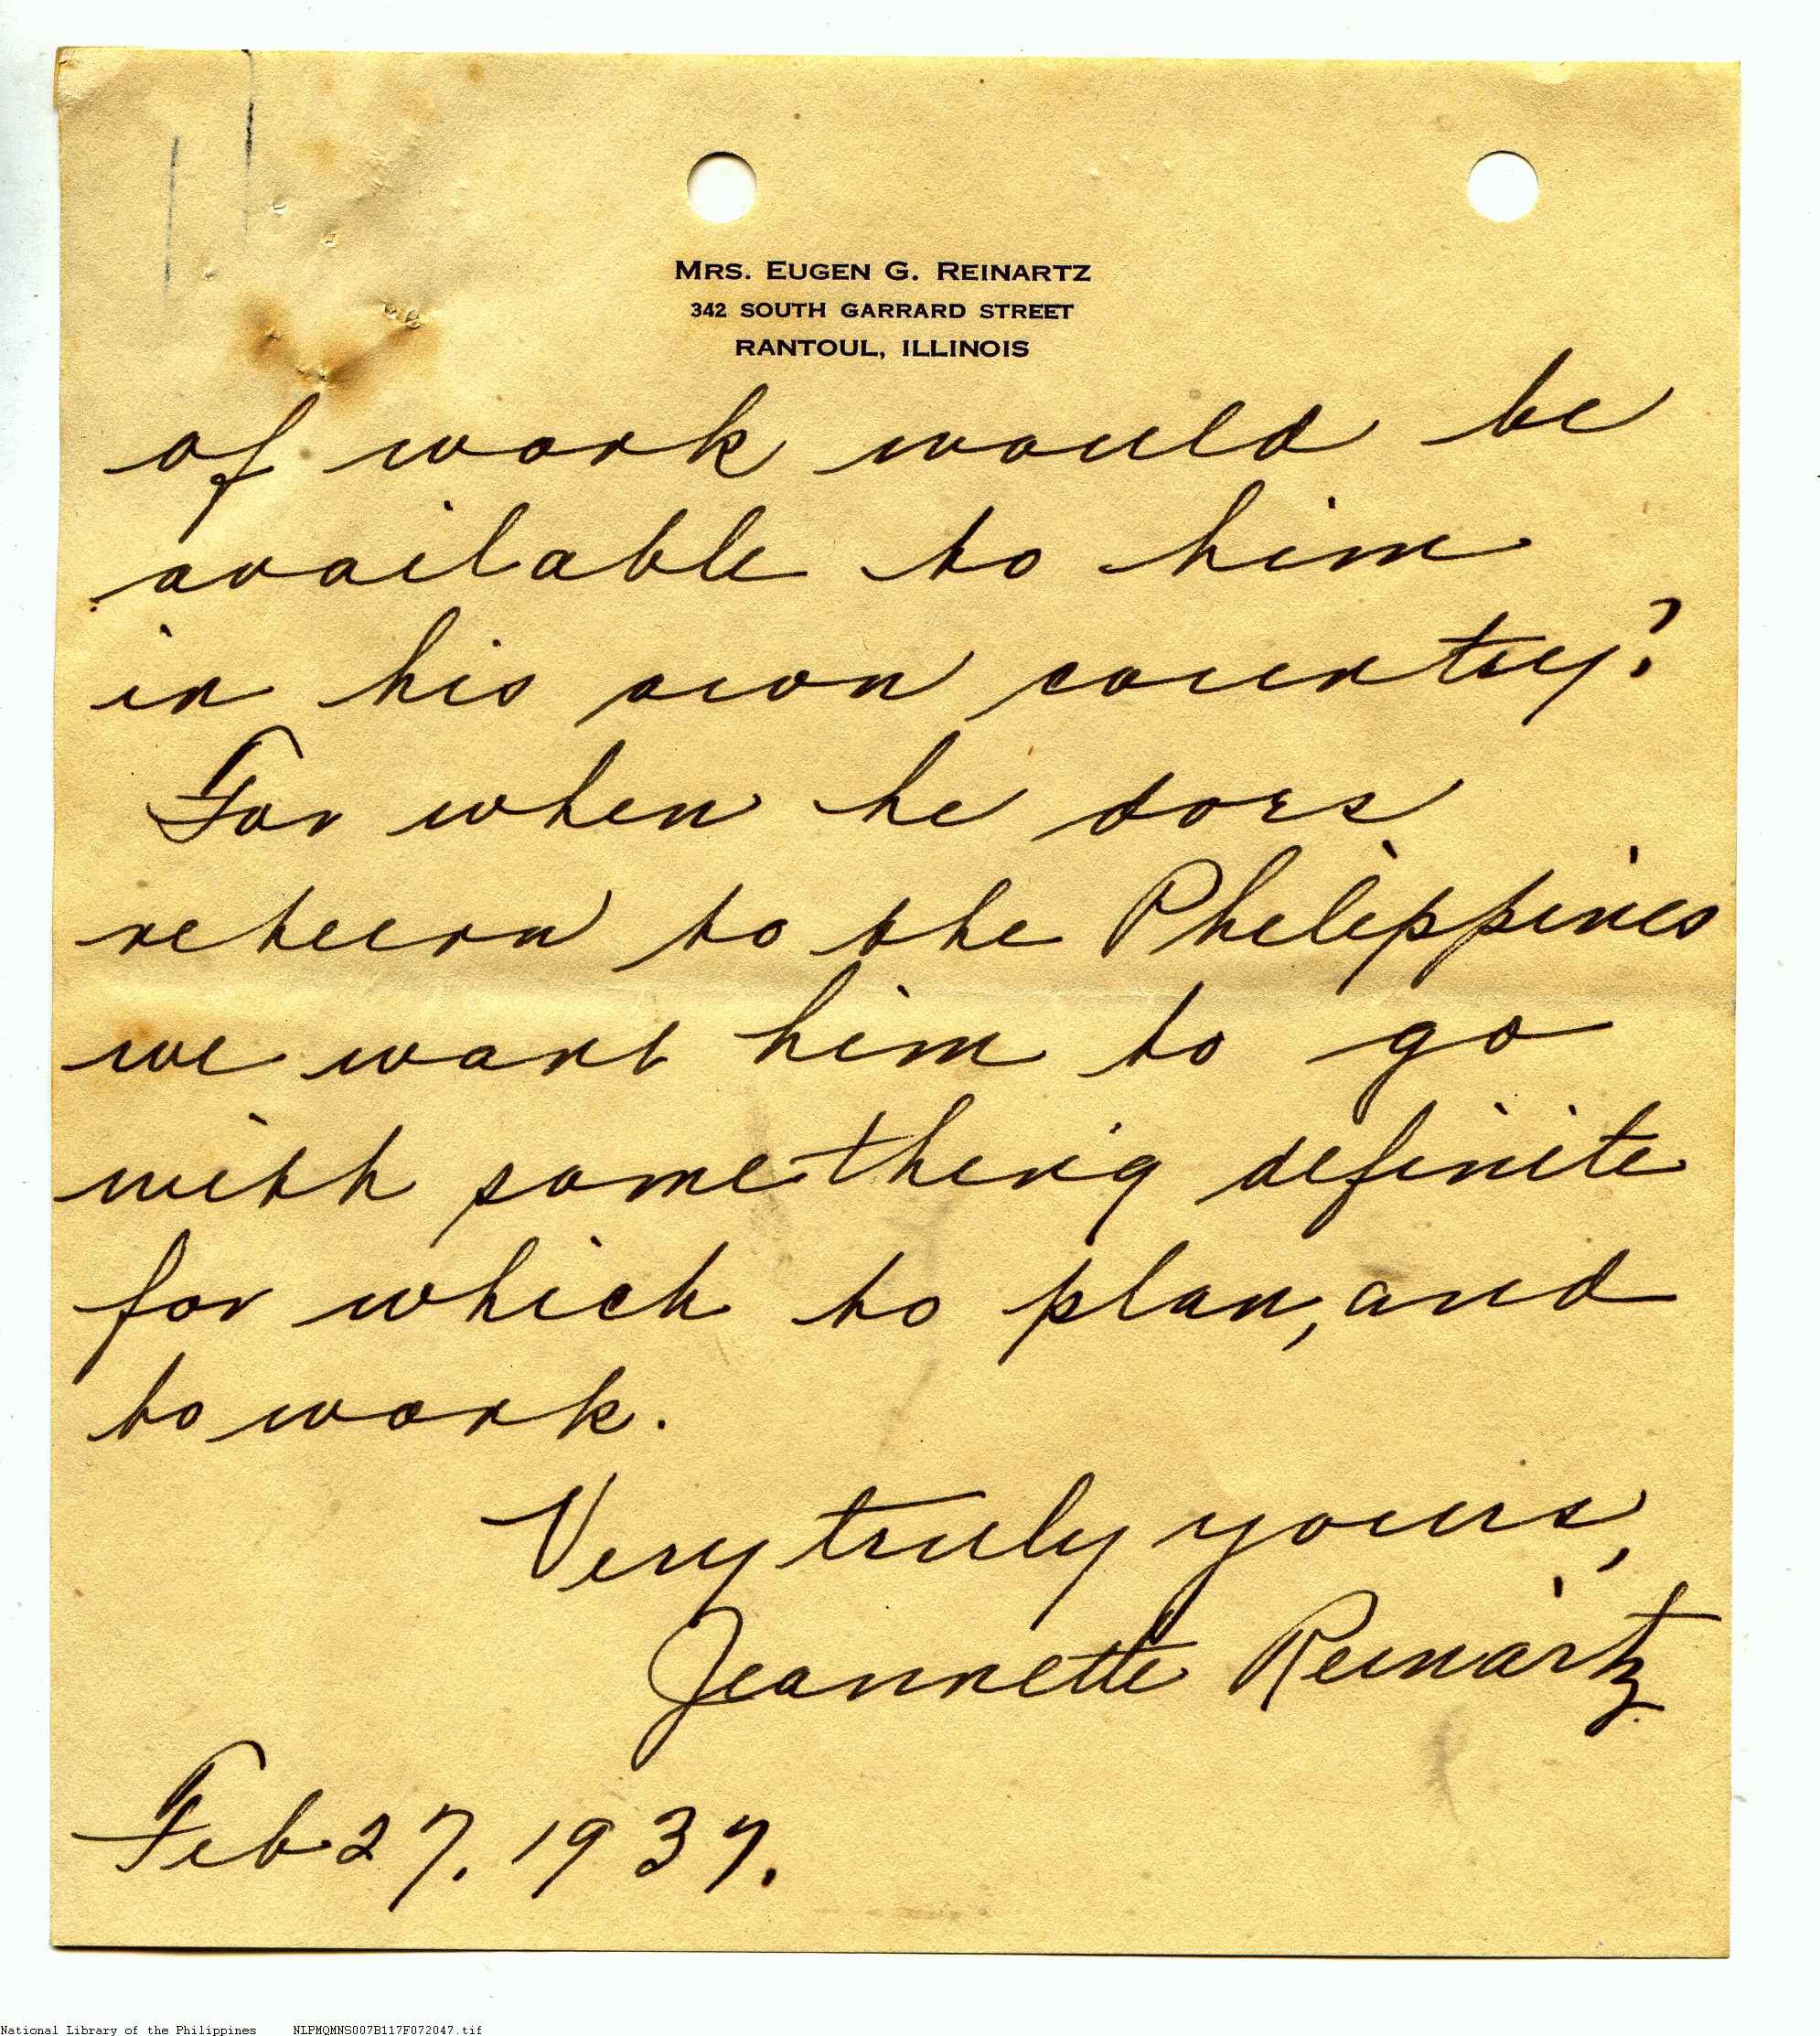 MRS. EUGEN G. REINARTZ
342 SOUTH GARRARD STREET
RANTOUL, ILLINOIS
of work would be
available to him
in his own country?
For when he does
return to the Philippines
we want him to go
with something definite
for which to plan, and
to work.
Very truly yours,
Jeannette Reinartz
Feb 27. 1937.
National Library of the Philippines NLPMQMNS007B117F072047.tif